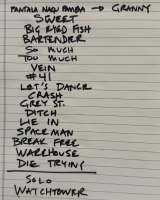 PANTALA NAGA PAMPA → GRANNY
SWEET
BIG EYED FISH
BARTENDER
SO MUCH
TOO MUCH
VEIN
#41
LET'S DANCE
CRASH
GREY ST.
DITCH
LIE IN
SPACEMAN
BREAK FREE
WAREHOUSE
DIE TRYING
SOLO
WATCHTOWER